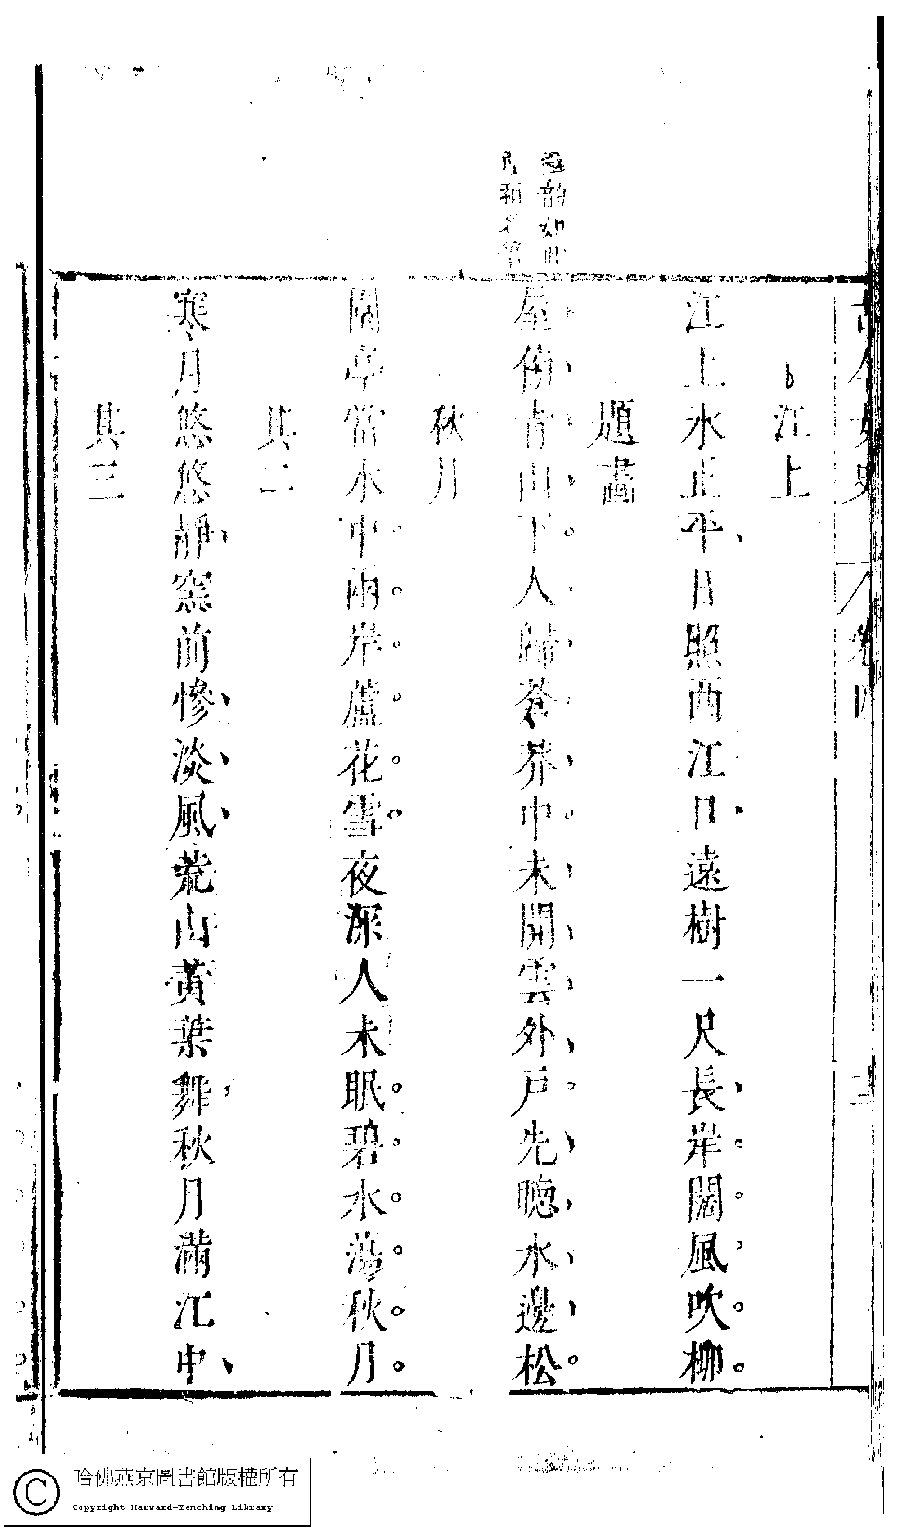 江上
江上水正平日照西江日遠樹一尺長岸闊風吹柳
題畵
屋傍青山下人歸蒼莽中未開雲外戸先聽水邊松
秋月
閣亭當水中兩岸蘆花雪夜深人未眠碧水蕩秋月
其二
寒月悠悠靜客前慘淡風荒山黃葉舞秋月滿江中
其三
哈佛燕京圖書館版權所有
Copyright Harvard-Yenching Library